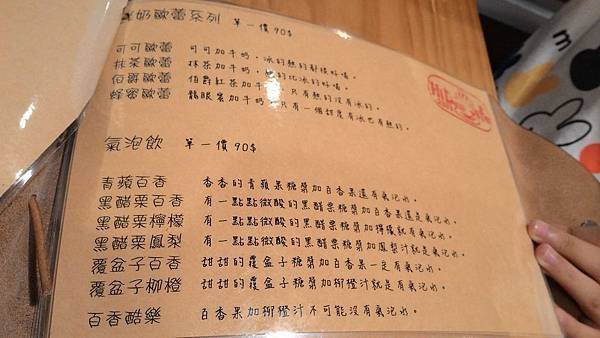 奶歐蕾系列 單一價90$
可可歐蕾 可可加牛奶，冰的熱的都很好喝。
抹茶歐蕾 抹茶加牛奶，熱的比冰的好喝。
伯爵歐蕾 伯爵紅茶加牛奶，只有熱的沒有冰的。
蜂蜜歐蕾 龍眼蜜加牛奶，只有一個甜度有冰也有熱的。
氣泡飲 單一價90$
青蘋百香 香香的青蘋果糖漿加百香果還有氣泡水。
黑醋栗百香 有一點點微酸的黑醋栗糖漿加百香果還是氣泡水。
黑醋栗檸檬 有一點點微酸的黑醋栗糖漿加檸檬就有氣泡水。
黑醋栗鳳梨 有一點點微酸的黑醋栗糖漿加鳳梨汁就是氣泡水。
覆盆子百香 甜甜的覆盆子糖漿加百香果一定有氣泡水。
覆盆子柳橙 甜甜的覆盆子糖漿加柳橙汁就是有氣泡水。
百香酷樂 百香果加柳橙汁不可能沒有氣泡水。